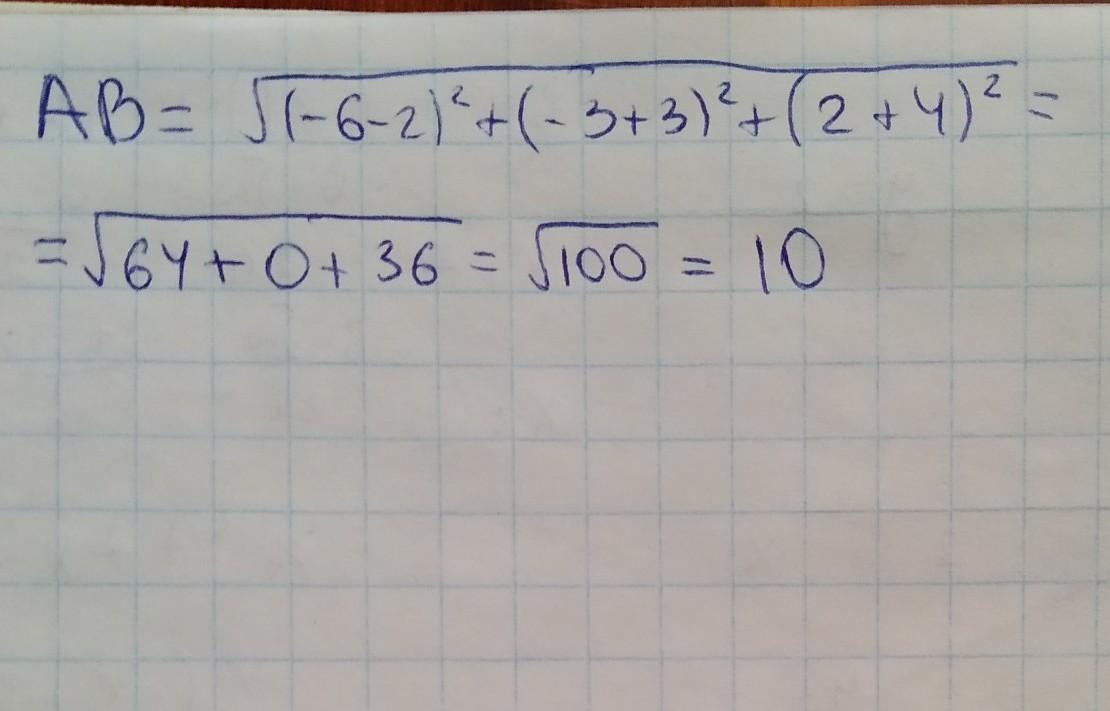 AB = √(-6-2)² + (-3+3)² + (2+4)² =
= √64 + 0 + 36 = √100 = 10